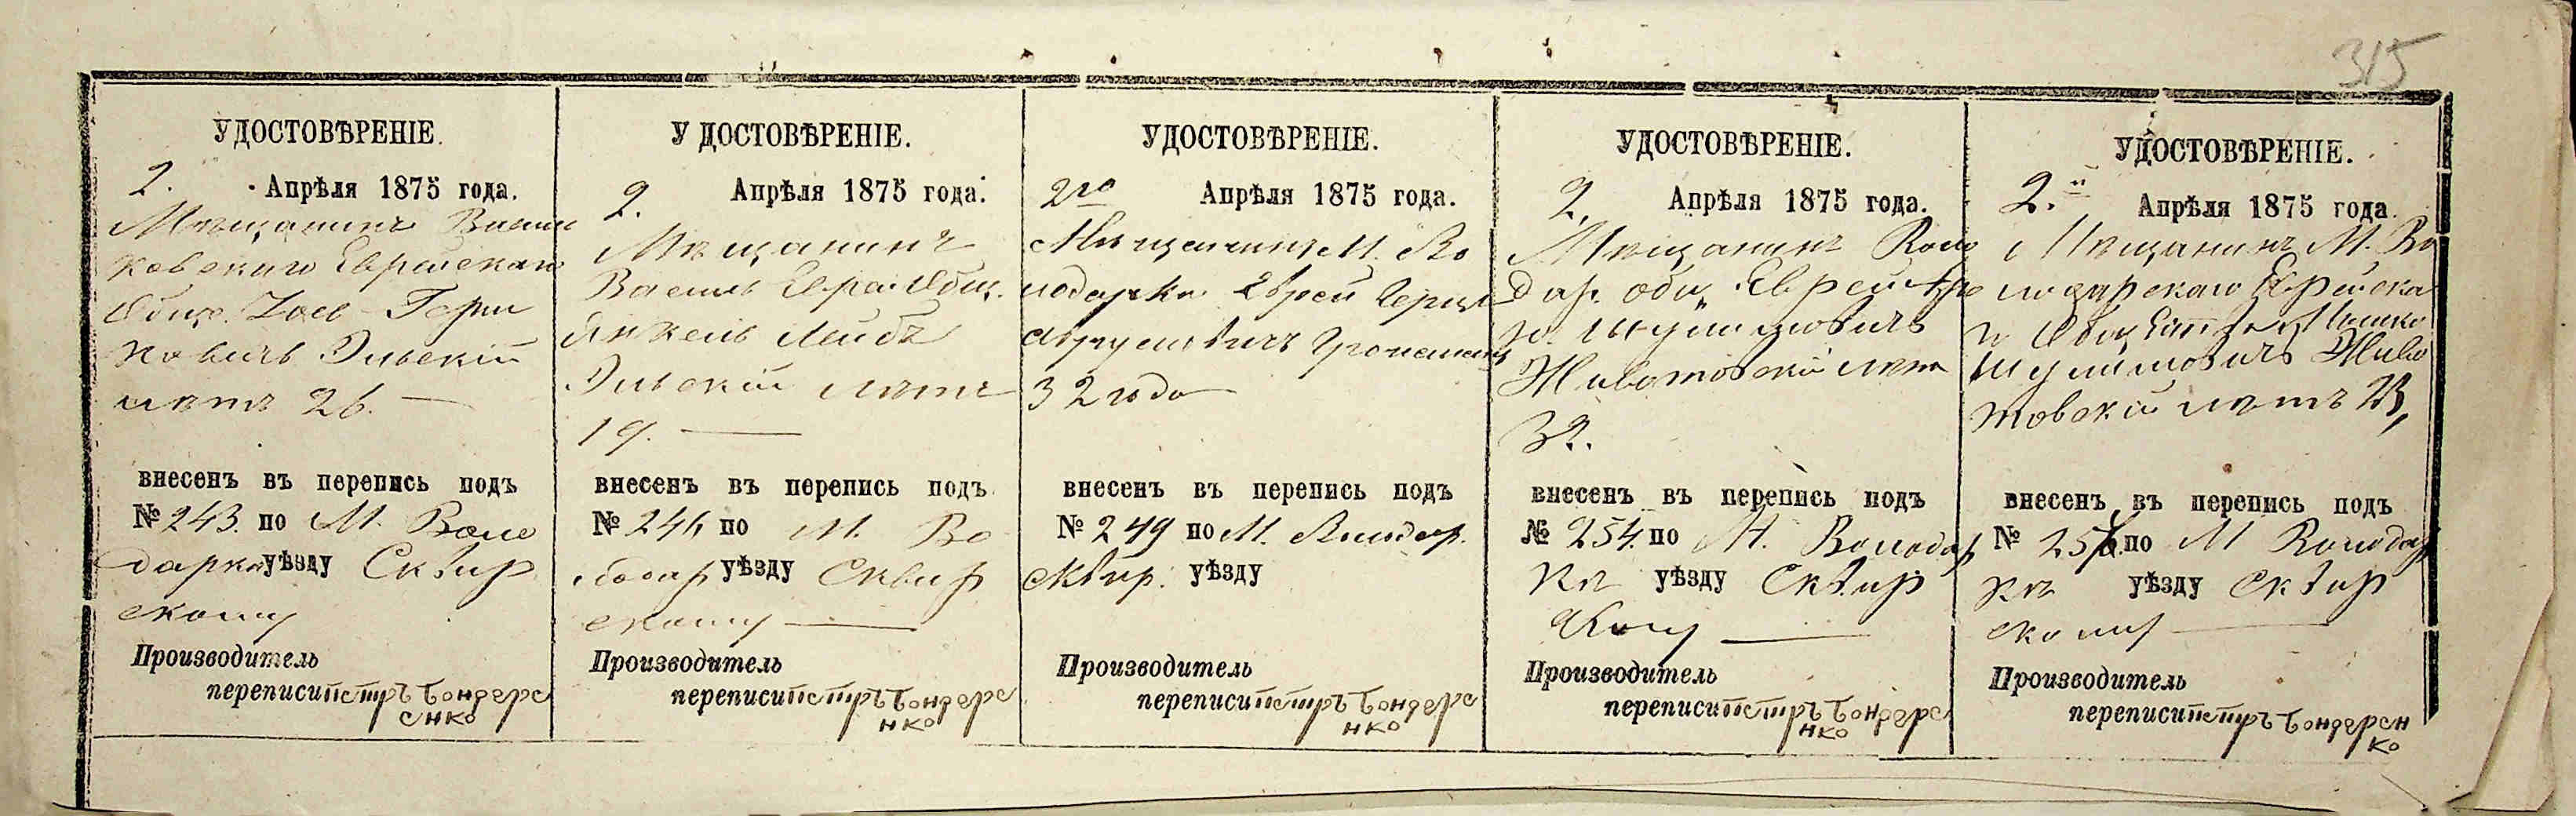 315
УДОСТОВѢРЕНІЕ.
2. Апрѣля 1875 года.
Мѣщанинъ Василь
ковскаго Еврейскаго
Общ. Іосе Герш
ковичъ Эльскій
лѣтъ 26.
внесенъ въ перепись подъ
№ 243. по М. Воло
даркѣ уѣзду Сквир
скому
Производитель
переписи Петръ Бондаре
енко
У ДОСТОВѢРЕНІЕ.
2. Апрѣля 1875 года.
Мѣщанинъ
Василь Евра. Общ.
Янкель Лейбъ
Эльскій лѣтъ
19.
внесенъ въ перепись подъ
№ 246 по М. Во
лодар уѣзду Сквир
скому
Производитель
переписи Петръ Бондаре
нко
УДОСТОВѢРЕНІЕ.
2го Апрѣля 1875 года.
Мѣщанинъ М. Во
лодарки Еврей Герш
32 года
внесенъ въ перепись подъ
№ 249 по М. Володар.
Сквир. уѣзду
Производитель
переписи Петръ Бондаре
нко
УДОСТОВѢРЕНІЕ.
2. Апрѣля 1875 года.
Мѣщанинъ Воло
дар. общ. Еврей
Шулимовичъ
Животовскій лѣтъ
32.
внесенъ въ перепись подъ
№ 254. по М. Володар
кѣ уѣзду Сквир
скому
Производитель
переписи Петръ Бондаре
нко
УДОСТОВѢРЕНІЕ.
2.й Апрѣля 1875 года.
Мѣщанинъ М. Во
лодарскаго Еврейска
го Общ. Мошко
Шулимовичъ Живо
товскій лѣтъ 23,
внесенъ въ перепись подъ
№ по М Володар
кѣ уѣзду Сквир
скому
Производитель
переписи Петръ Бондарен
ко